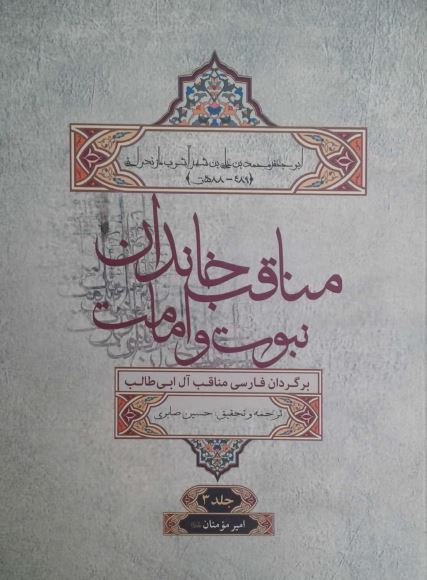 ابوجعفر محمد بن علی بن شهرآشوب مازندرانی
(۴۸۹-۵۸۸ هـ.ق)
مناقب خاندان
نبوت و امامت
برگردان فارسی مناقب آل ابی‌طالب
ترجمه و تحقیق: حسین صابری
جلد ۳
امیر مؤمنان